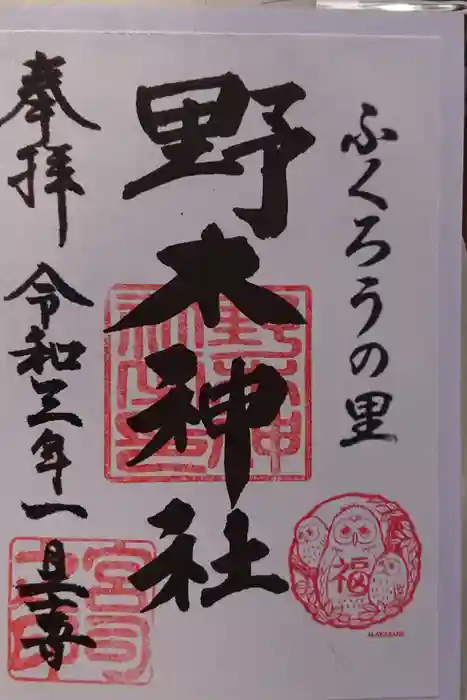 ふくろうの里
野木神社
奉拝
令和三年一月
福